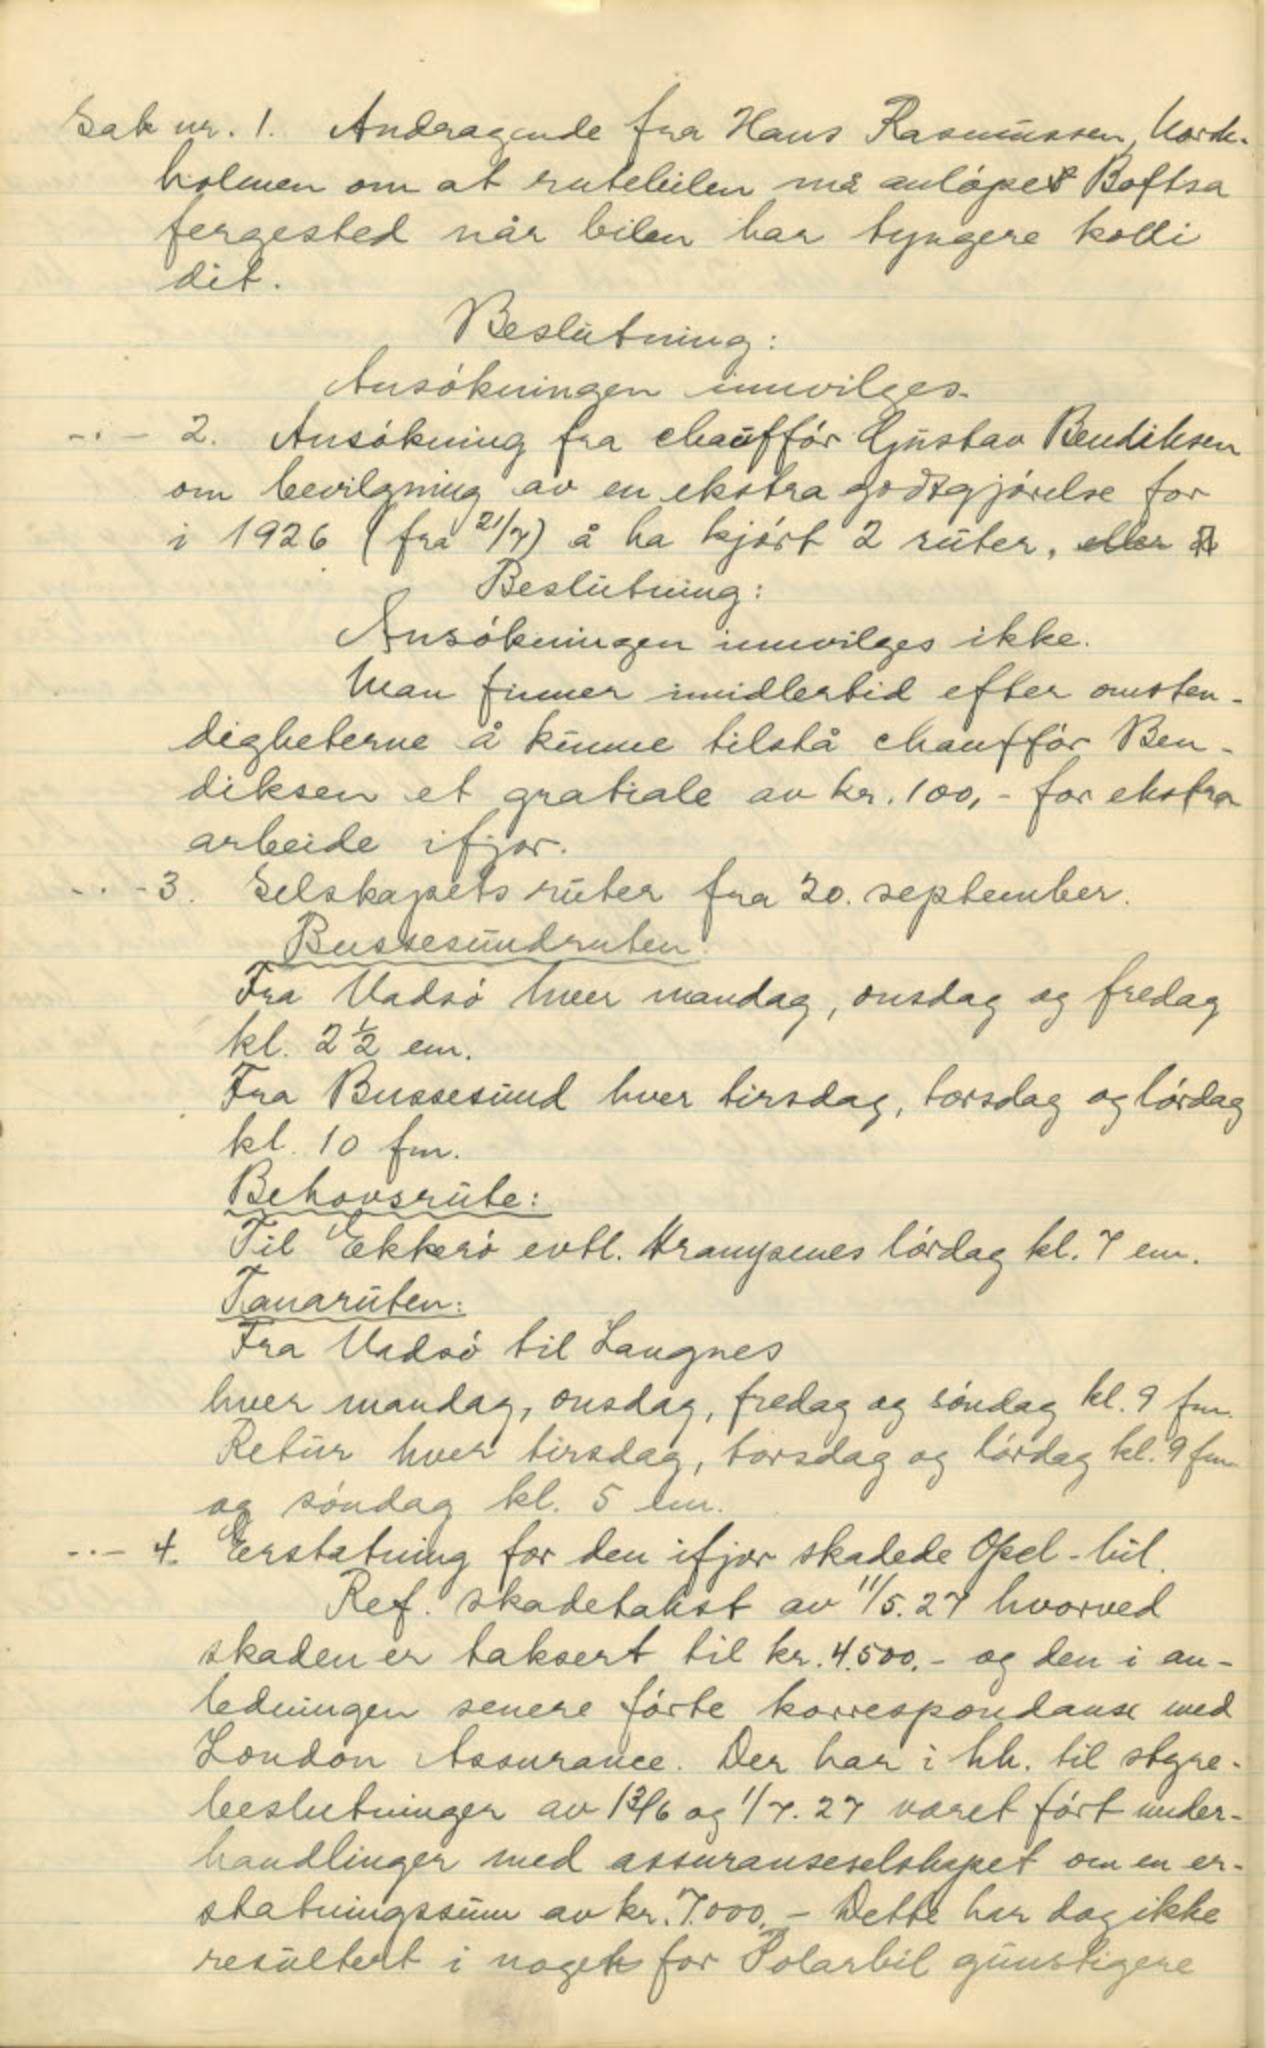 Sak nr. 1. Andragende fra Hans Rasmussen, Nord-
holmen om at rutebilen må anlöpe Boftsa
fergested når bilen har tyngere kolli
dit.
Beslutning:
Ansökningen innvilges.
-·- 2. Ansökning fra chauffór Gustav Bendiksen
om bevilgning av en ekstra godtgjórelse for
i 1926 (fra 21/7) å ha kjórt 2 ruter, eller
Beslutning:
Ansökningen innvilges ikke.
Man finner imidlertid efter omsten-
digheterne å kunne tilstå chauffór Ben-
diksen et gratiale av kr. 100,- for ekstra
arbeide ifjor.
-·- 3. Selskapets ruter fra 20. september.
Bussesundruten:
Fra Vadsó hver mandag, onsdag og fredag
kl. 2 1/2 em.
Fra Bussesund hver tirsdag, torsdag og lórdag
kl. 10 fm.
Behovsrute:
Til Ekkeró evtl. Krampenes lórdag kl. 7 em.
Tanaruten:
Fra Vadsó til Langnes
hver mandag, onsdag, fredag og sóndag kl. 9 fm.
Retur hver tirsdag, torsdag og lórdag kl. 9 fm
og sóndag kl. 5 em.
-·- 4. Erstatning for den ifjor skadede Opel-bil.
Ref. skadetakst av 11/5.27 hvorved
skaden er taksert til kr. 4.500,- og den i an-
ledningen senere fórte korrespondanse med
London Assurance. Der har i hh. til styre-
beslutninger av 13/6 og 1/7.27 været fórt under-
handlinger med assuranseselskapet om en er-
statningssum av kr. 7.000,- Dette har dog ikke
resultert i noget for Polarbil gunstigere